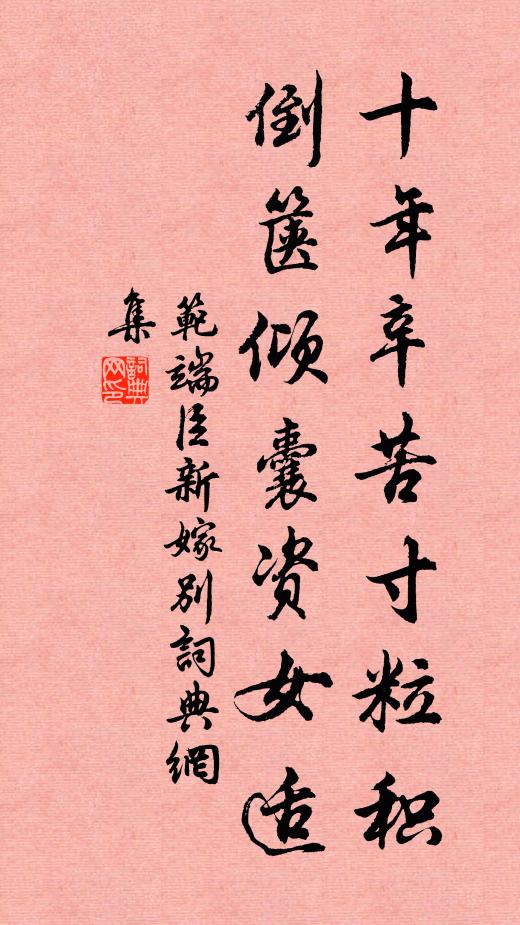 十年辛苦寸粒积
倒箧倾囊资女适
範端臣新嫁别詞典網
集
詞典網印